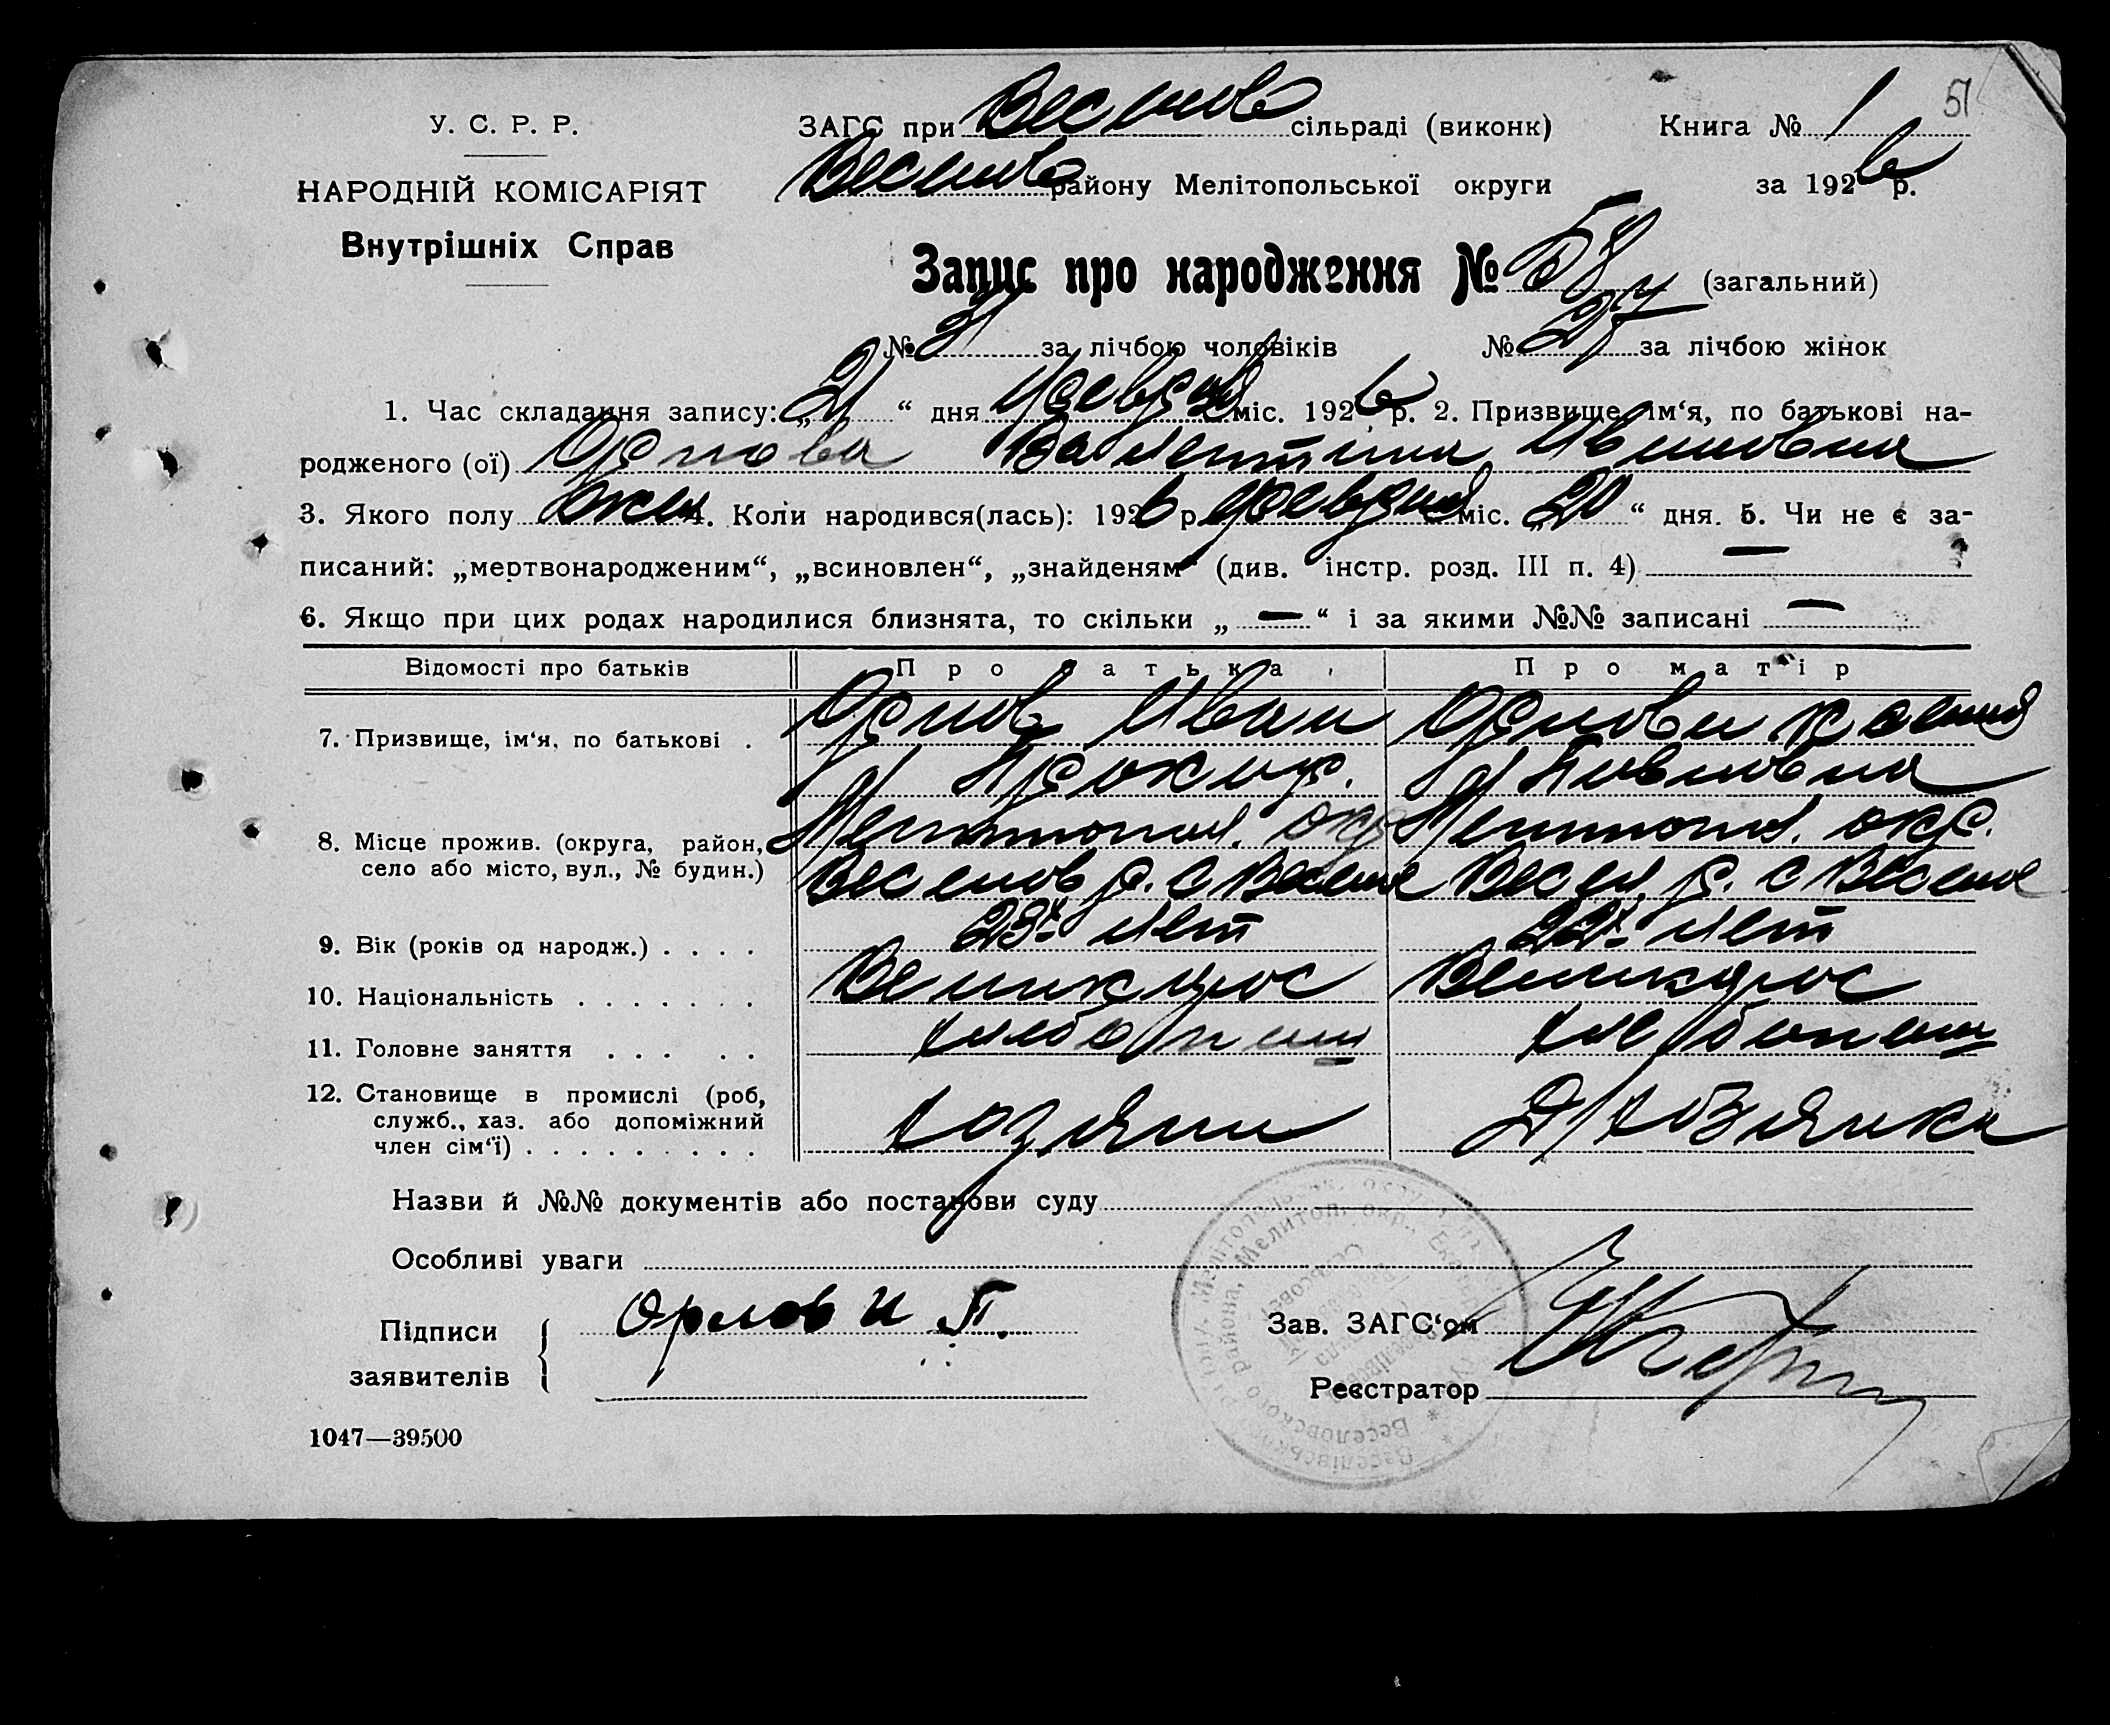 У. С. Р. Р.
НАРОДНІЙ КОМІСАРІЯТ
Внутрішніх Справ
ЗАГС при Веселов сільраді (виконк) Книга № 1 51
Веселов району Мелітопольської округи за 1926 р.
Запис про народження № 58 (загальний)
№ за лічбою чоловіків № 27 за лічбою жінок
1. Час складання запису: „21“ дня февраля міс. 1926 р. 2. Призвище, ім‘я, по батькові на-
родженого (ої) Орлова Валентина Ивановна
3. Якого полу жен 4. Коли народився(лась): 1926 р. февраля міс. „20“ дня. 5. Чи не є за-
писаний: „мертвонародженим“, „всиновлен“, „знайденям“ (див. інстр. розд. III п. 4) —
6. Якщо при цих родах народилися близнята, то скільки „—“ і за якими №№ записані —
Відомості про батьків Про атька Про матір
7. Призвище, ім‘я, по батькові . Орлов Иван Орлова Ксения
Прокоф. Павловна
8. Місце прожив. (округа, район, Мелитопол. окр Мелитопол. окр.
село або місто, вул., № будин.) Веселов р. с Веселое Весел. р. с Веселое
9. Вік (років од народж.) . . . . 23х лет 22х лет
10. Національність . . . . . . . Великорос Великорос
11. Головне заняття . . . . . хлебопаш хлебопаш
12. Становище в промислі (роб,
служб., хаз. або допоміжний
член сім‘ї) . . . . . . . . . хозяин Д/хозяйка
Назви й №№ документів або постанови суду
Особливі уваги
Підписи
заявителів
Орлов И П.
Зав. ЗАГС‘ом
Реєстратор
1047—39500